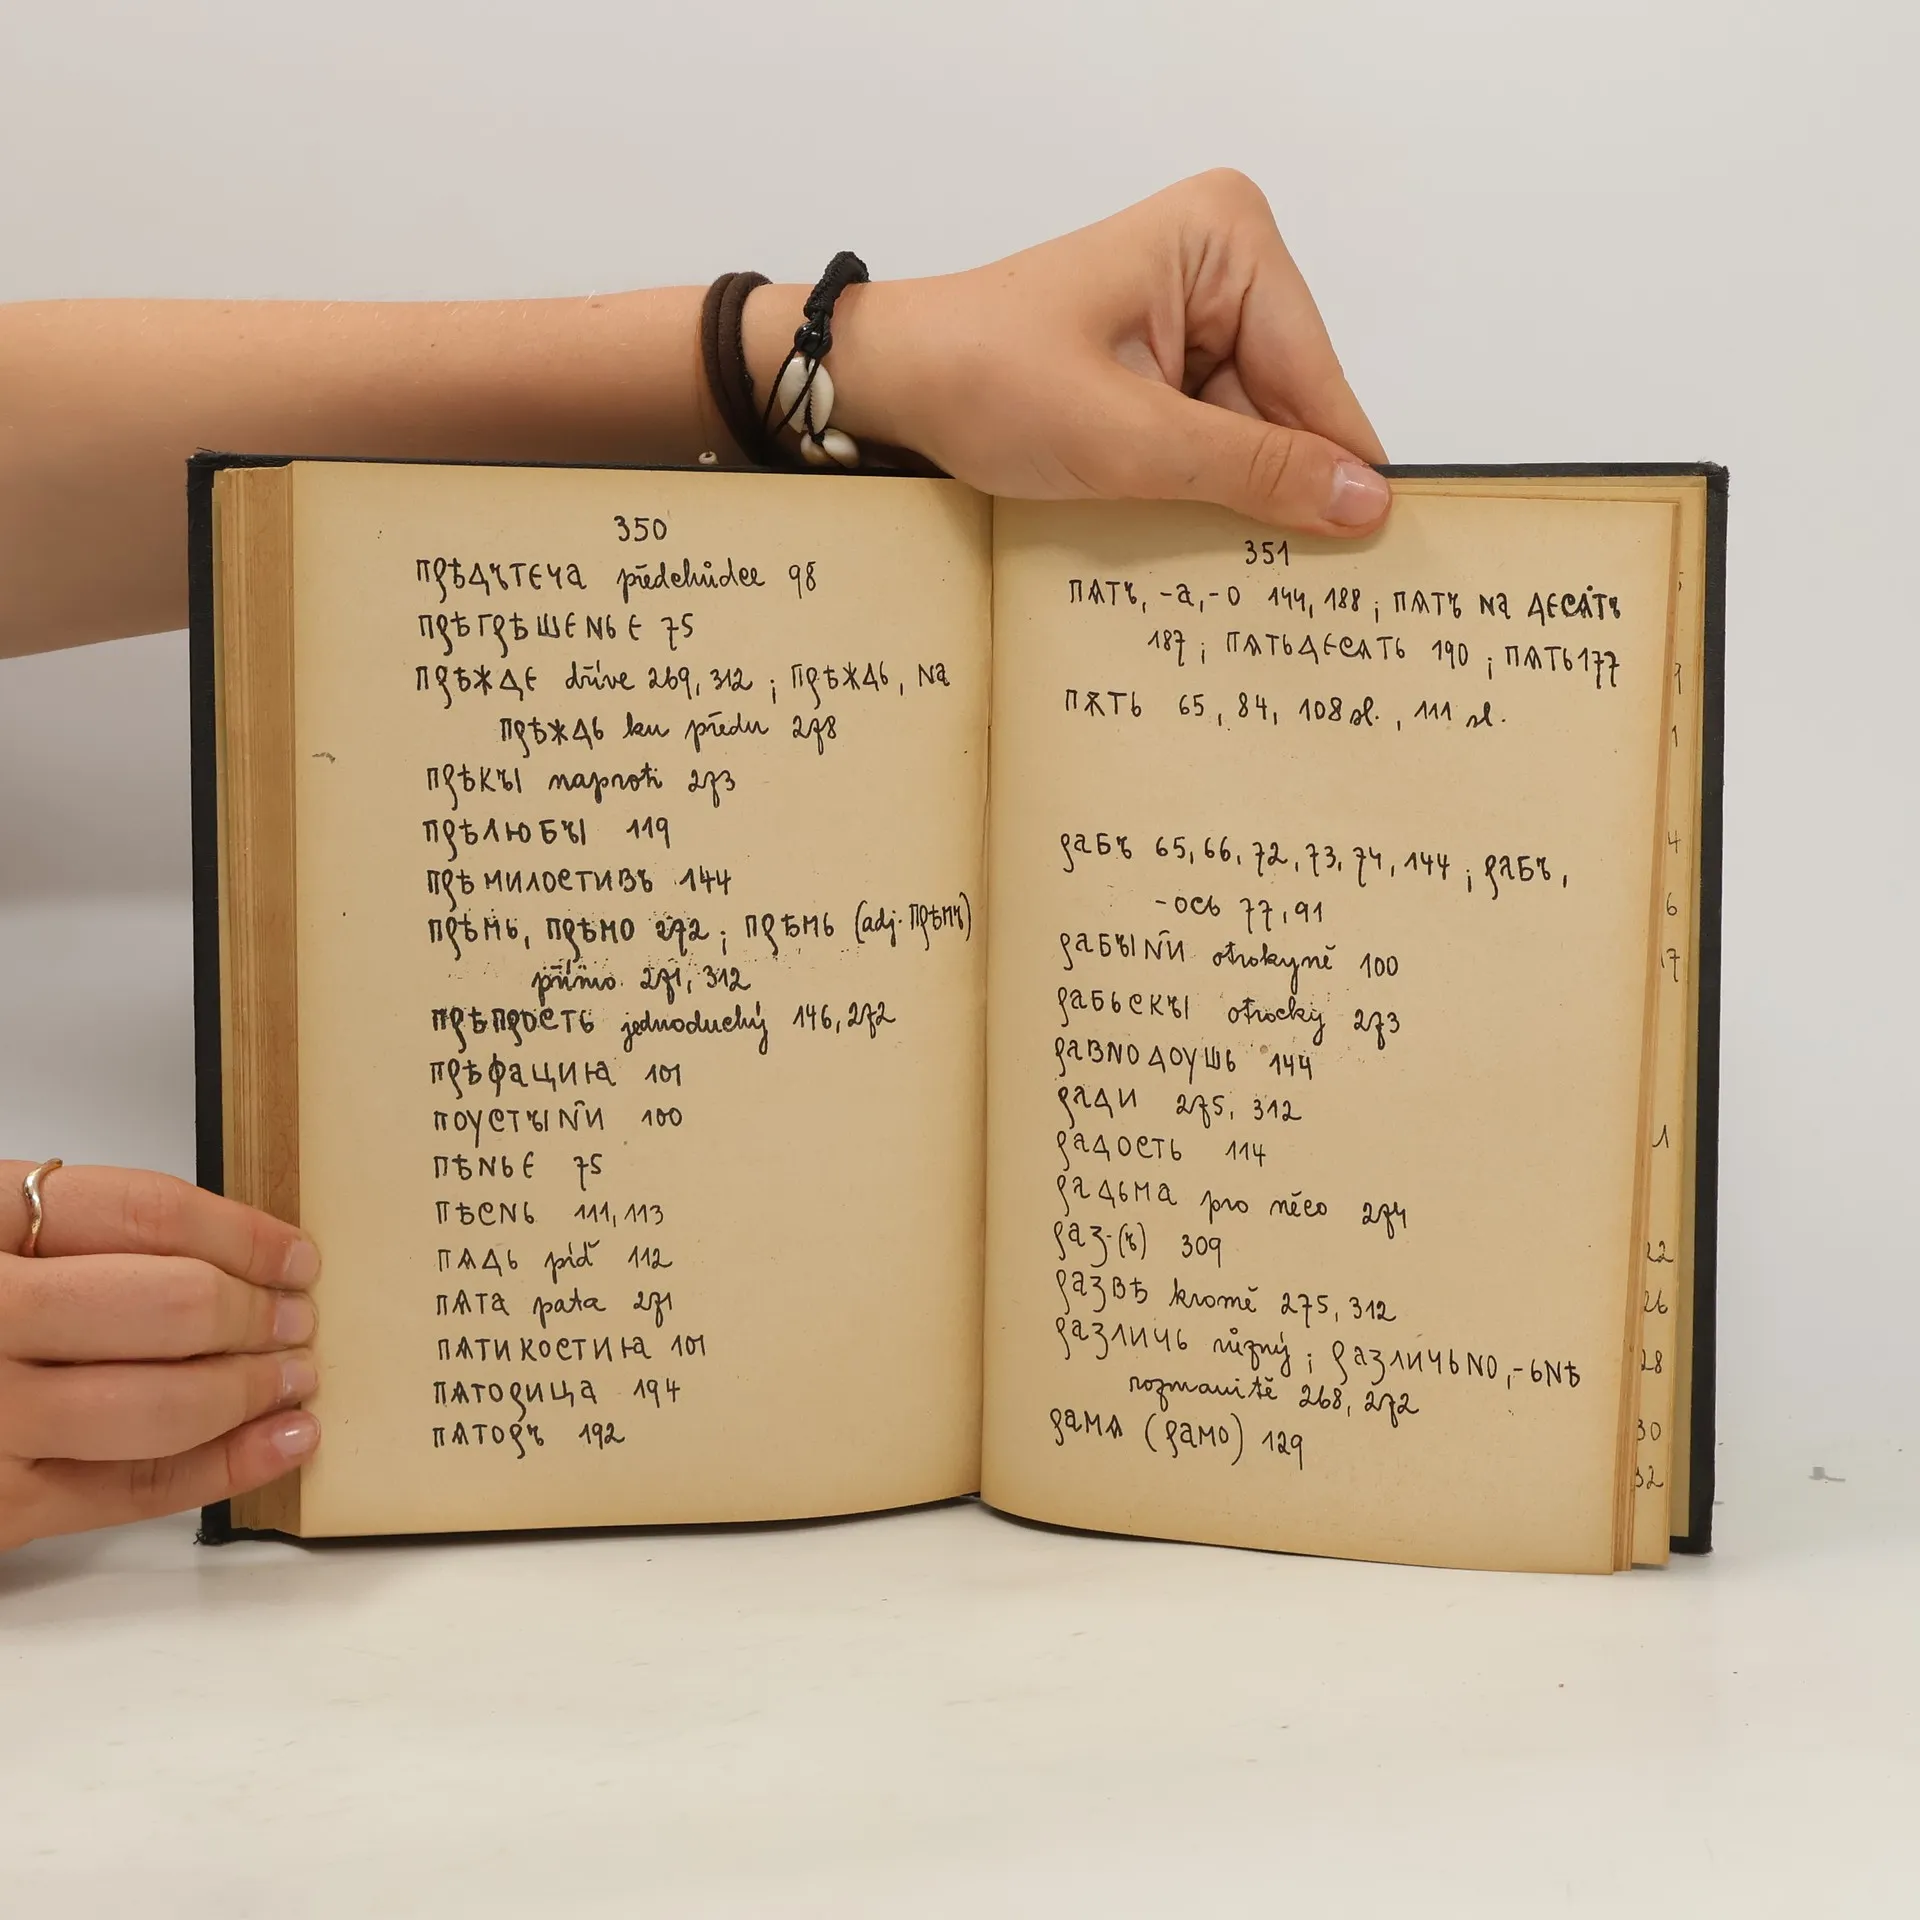 350
прѣдътеча předchůdce 98
прѣгрѣшенье 75
прѣжде dříve 269, 312 ; прѣждь, на
прѣждь ku předu 278
прѣкъі naproti 273
прѣлюбъі 119
прѣмилостивъ 144
прѣмь, прѣмо 272 ; прѣмь (adj. прѣмъ)
přímo 271, 312
прѣпрость jednoduchý 146, 272
прѣфациꙗ 101
поустъін҄и 100
пѣнье 75
пѣснь 111, 113
пѧдь píď 112
пѧта pata 271
пѧтикостиꙗ 101
пѧторица 194
пѧторъ 192
351
пѧтъ, -а, -о 144, 188 ; пѧтъ на десѧтъ
187 ; пѧтьдесѧтъ 190 ; пѧть 177
пѫть 65, 84, 108 sl., 111 sl.
рабъ 65, 66, 72, 73, 74, 144 ; рабъ,
-ось 77, 91
рабъін҄и otrokyně 100
рабьскъі otrocky 273
равнодоушь 144
ради 275, 312
радость 114
радьма pro něco 274
раз-(ъ) 309
развѣ kromě 275, 312
различь různý ; различьно, -ьнѣ
rozmanitě 268, 272
рамѧ (рамо) 129
4
6
17
1
22
26
28
30
32